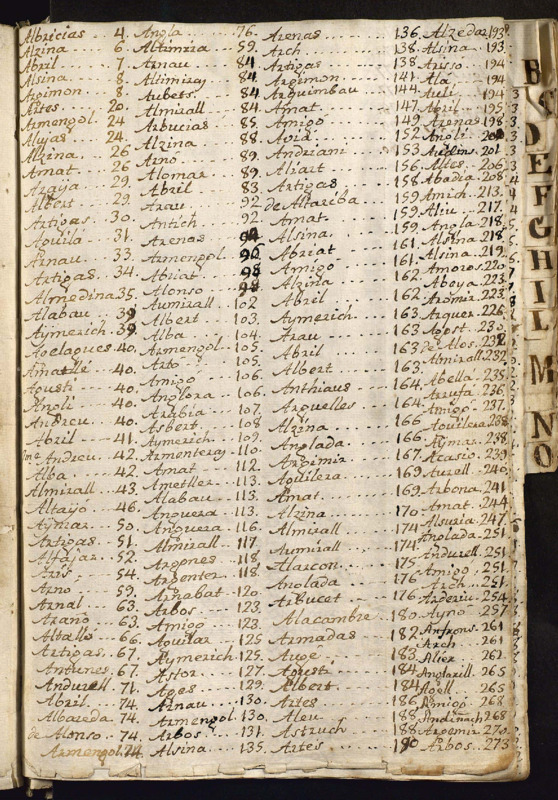 Albricias 4.
Alzina 6
Abril 7
Alsina 8.
Argimon 8.
Artes 20.
Armengol 24
Alujas 24
Alzina 26
Amat 26
Araya 29.
Albert 29
Artigas 30.
Aguila 31.
Arnau 33.
Artigas 34.
Almedina 35.
Alabau 39
Aymerich 39
40.
Amatlle 40.
Agusti 40.
Angli 40.
Andreu 40.
Abril 41.
Andreu 42.
Alba 42.
Almirall 43.
Altayo 46.
Aymar 50.
Artigas 51.
Alfajar 52.
54.
Arno 59.
Arnal 63.
Arano 63.
Altalls 66
Artigas 67.
Antunes 67.
Andurell 71.
Abril 74.
Albareda 74.
de Alonso 74.
Armengol 74
Angla 76.
59.
Arnau 84
Altimiray 84
Aubets 84
Almirall 84
Arbucias 85
Alzina 88
Arno 89.
Alomar 89.
Abril 83
Arau 92
Antich 92
Arenas 94
Armengol 96
Abriat 98
Alonso 98
Aumirall 102
Albert 103.
Alba 104.
Armengol 105.
Arto 105.
Amigo 106.
Anglora 106.
Arabia 107.
Asbert 108
Aymerich 109.
Armenteras 110.
Amat 112.
Ametller 113.
Alabau 113.
Anguera 113.
Anguera 116.
Almirall 117.
Aragones 118
Argenter 118.
Arnabat 120.
Arbos 123.
Amigo 123.
Aguilar 125
Aymerich 125
Astor 127.
Ages 129.
Arnau 130.
Armengol 130.
Arbos 131.
Alsina 135.
Arenas 136.
Arch 138
Artigas 138
Argimon 141
Arquimbau 144
Amat 147
Amigo 149
152
Andriani 153
Aliart 156
Artigas 158
de Altariba 159
Amat 159
Alsina 159.
Abriat 161.
Amigo 161.
Alzina 162
Abril 162
Aymerich 163
Arau 163
Abril 163
Albert 163.
Anthiaus 164
Arguelles 164.
Alzina 166
Anglada 166
Argimir 167
Aguilera 169
Amat 169.
Alzina 170
Almirall 174
Aumirall 174.
Alarcon 175
Anglada 176
Arbucet 176
Alacambre 180.
Armadas 182
Auge 183
Agusti 184
Albert 184
Artes 186
Aleu 188
Astruch 188
Artes 190
Alzedar 193
Alsina 193.
Ariso 194
Ala 194
Auli 194
Abril 195
Arenas 198.
Angli 200
201
Altes 206
Abadia 208.
Amich 213.
Aliu 217.
Angla 218.
Alsina 218
Alsina 219.
Amoros 220
Aboya 223.
Aromir 223.
Arquer 226.
Agost 230.
de Alos 232
Almirall 232
Abella 235.
Arrufa 236.
Amigo 237.
Aguilera 238
Aymar 238.
Acasio 239.
Aurell 240.
Arbona 241
Amat 244
Alsuria 247
Anglada 251.
Andurell 251.
Amigo 251.
Arch 251.
Arderiu 254
Ayno 257
Anfruns 261
Arch 261
Alier 262.
Anglarill 265
Agell 265
Amigo 268
Andinach 268
Argemir 270.
Arbos 273
B
C
D
E
F
G
H
I
L
M
N
O